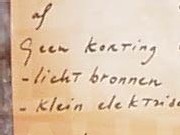 of
Geen korting
- licht bronnen
- klein elektris